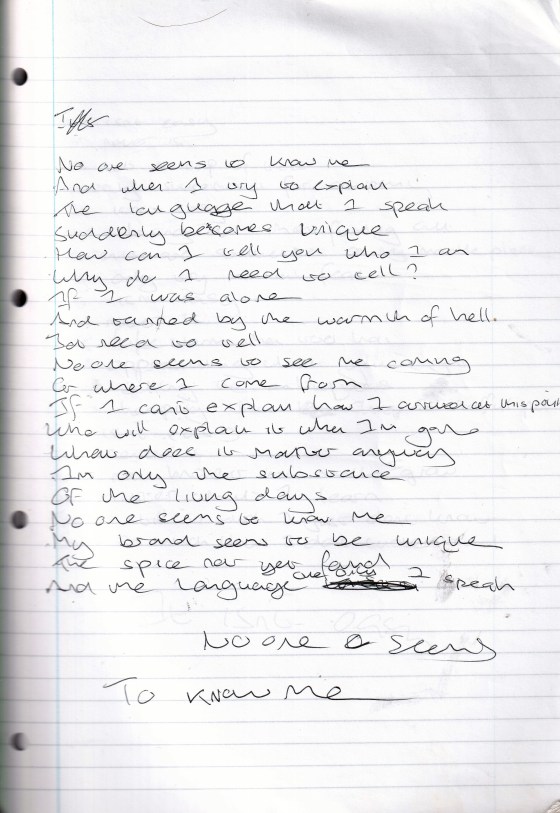 No one seems to know me
And when I try to explain
The language that I speak
Suddenly becomes Unique
How can I tell you who I am
Why do I need to tell?
If I was alone
And tanned by the warmth of hell.
I'd need to tell
No one seems to see me coming
Or where I come from
If I can't explain how I arrived at this point
Who will explain it when I'm gone
What does it matter anyway
I'm only the substance
Of the living days
No one seems to know me
My brand seem to be unique
The spice not yet found
And the language I speak
No one seems
To know me